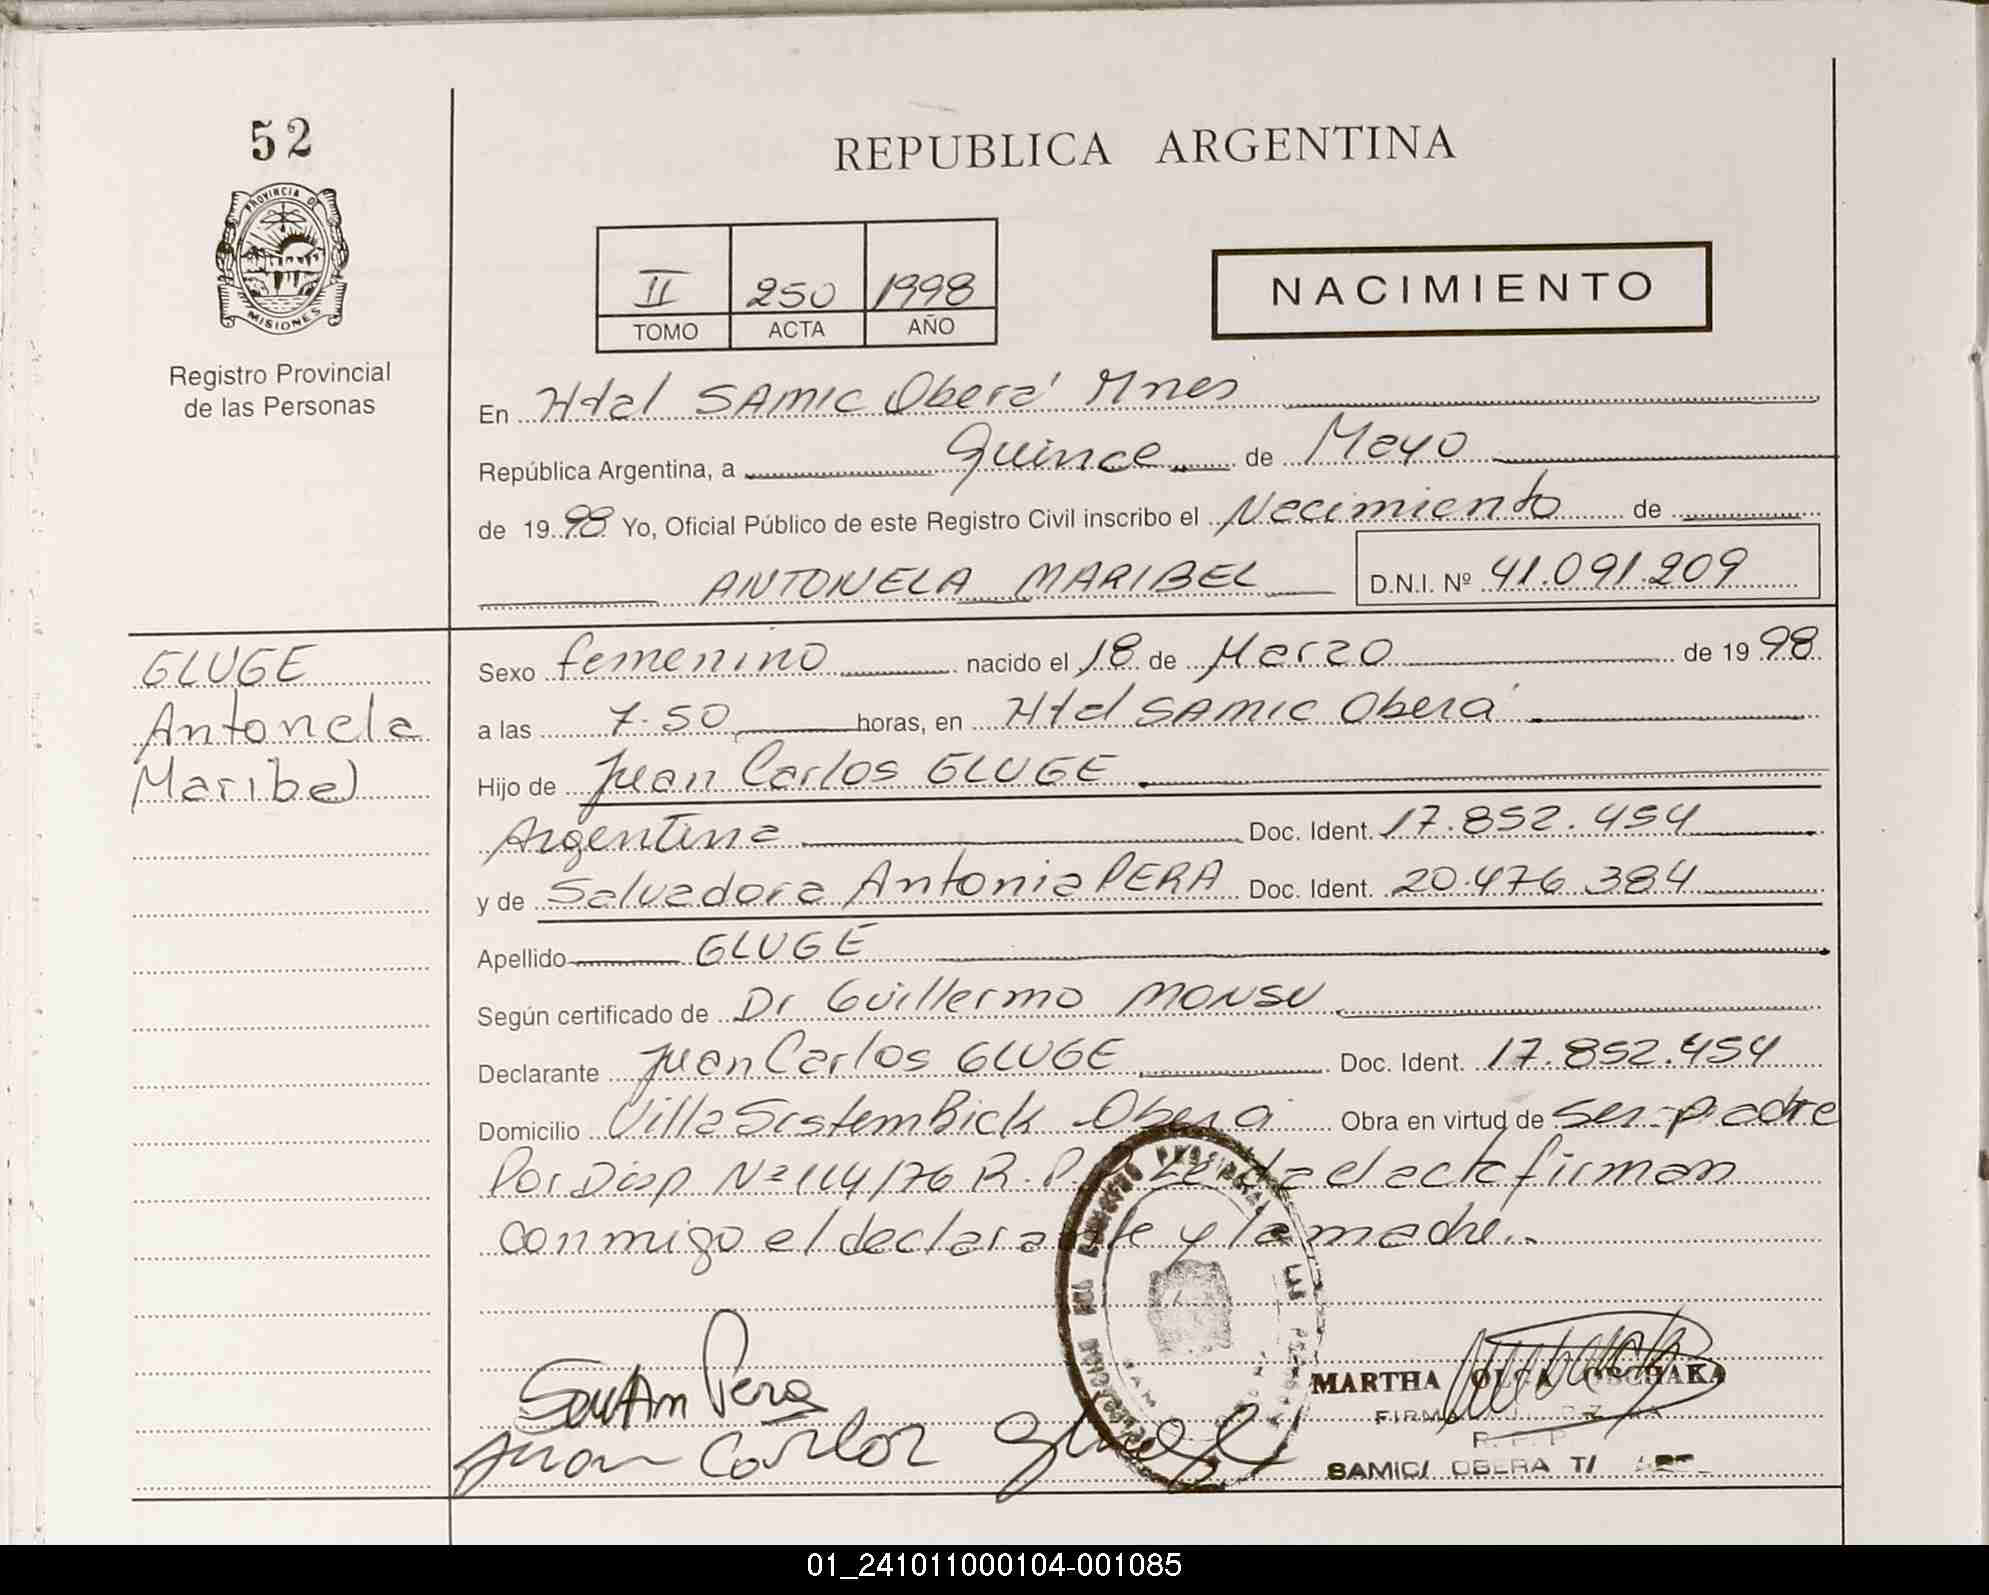 52
PROVINCIA DE
MISIONES
Registro Provincial
de las Personas
REPUBLICA ARGENTINA
II 250 1998
TOMO ACTA AÑO
NACIMIENTO
En Htal SAMIC Oberá Mnes
República Argentina, a Quince de Mayo
de 1998 Yo, Oficial Público de este Registro Civil inscribo el Nacimiento de
ANTONELA MARIBEL D.N.I. Nº 41.091.209
GLUGE
Antonela
Maribel
Sexo femenino nacido el 18 de Marzo de 1998
a las 7.50 horas, en Htal SAMIC Oberá
Hijo de Juan Carlos GLUGE
Argentina Doc. Ident. 17.852.454
y de Salvadora Antonia PERA Doc. Ident. 20.476.384
Apellido GLUGE
Según certificado de Dr Guillermo MONSU
Declarante Juan Carlos GLUGE Doc. Ident. 17.852.454
Domicilio Villa Sistem Bick Oberá Obra en virtud de ser padre
Por Disp Nº 114/76 R.P. Leida el acta firman
conmigo el declarante y la madre.
Pera
Juan Carlos Gluge
MARTHA OLGA
SAMIC/ OBERA
01_241011000104-001085